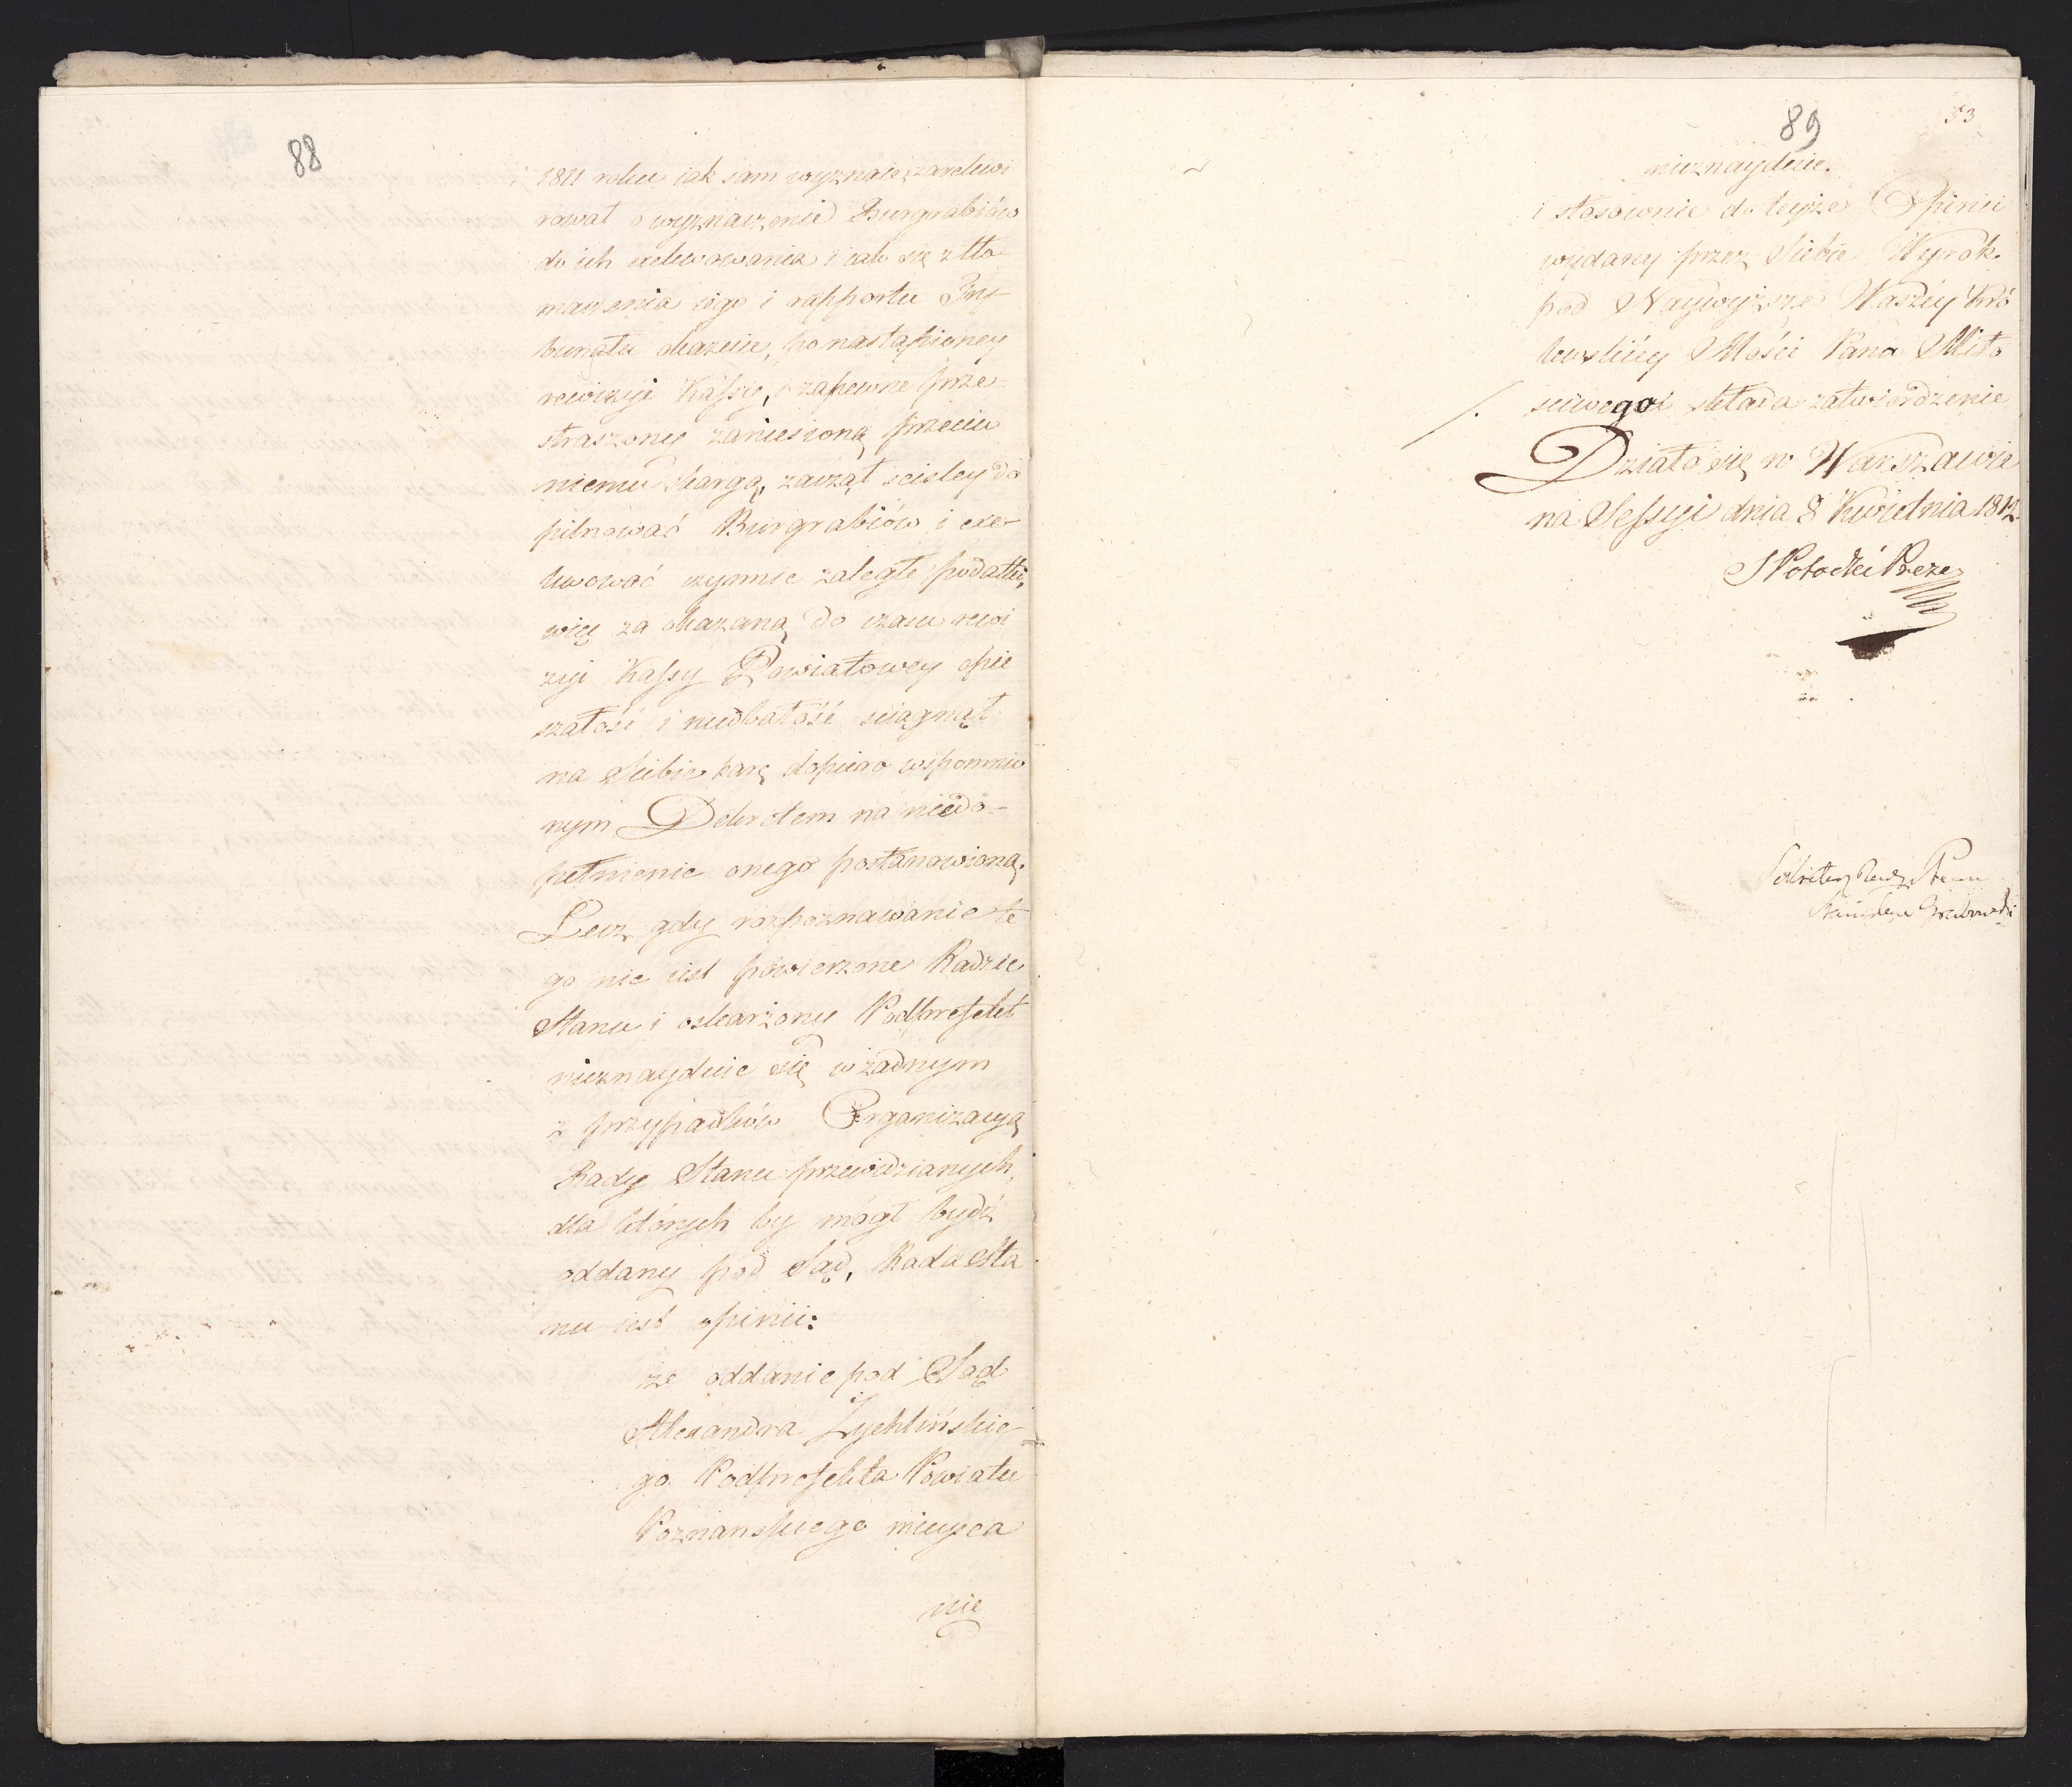 88
1811 roku iak sam wyznaie, zarekwi
rował o wyznaczenie Burgrabiów
do ich exekwowania i iak się z tło-
maczenia iego i rapportu Try-
bunału okazuie, po nastąpioney
rewizyi Kassy, zapewne prze-
straszony zaniesioną przeciw
niemu skargą, zaczął scisley do
pilnować Burgrabiów i exe-
kwować czynnie zaległe podatki,
więc za okazaną do czasu rewi
zyi Kassy Powiatowey opie
szałość i niedbałość sciągnął
na Siebie karę dopiero wspomnio
nym Dekretem na niedo-
pełnienie onego postanowioną.
Lecz gdy rozpoznawanie te
go nie iest powierzone Radzie
Stanu i oskarżony Podprefekt
nieznayduie się w żadnym
z przypadków Organizacyą
Rady Stanu przewidzianych,
dla których by mógł bydź
oddany pod Sąd, Rada Sta
nu iest opinii:
że oddanie pod Sąd
Alexandra Zychlińskie-
go Podprefekta Powiatu
Poznanskiego mieysca
nie
89
53
nieznayduie.
i stosownie do teyże Opinii
wydany przez Siebie Wyrok
pod Naywyższe Waszey Kró
lewskiey Mości Pana Miło
sciwego składa zatwierdzenie
Działo się w Warszawie
na Sessyi dnia 8 Kwietnia 1812
S Potocki Preze
Sekretarz Rady Stanu
Stanisław Grabowski